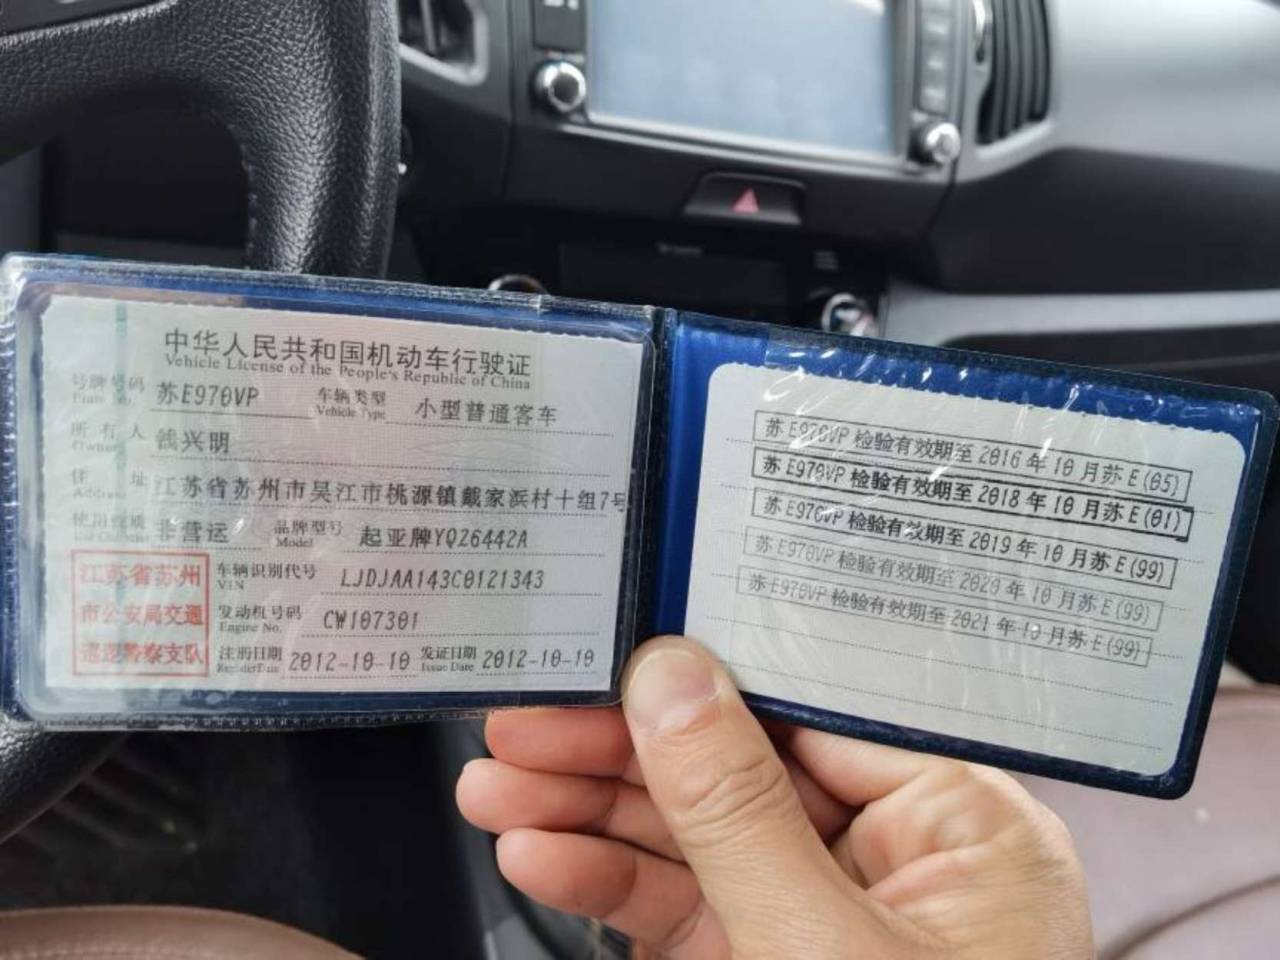 中华人民共和国机动车行驶证
Vehicle License of the People's Republic of China
号牌号码 苏E970VP 车辆类型 小型普通客车
Plate No. Vehicle Type
所有人 钱兴明
Owner
住址 江苏省苏州市吴江市桃源镇戴家浜村十组7号
Address
使用性质 非营运 品牌型号 起亚牌YQZ6442A
Use Character Model
江苏省苏州
市公安局交通
巡逻警察支队
车辆识别代号 LJDJAA143C0121343
VIN
发动机号码 CW107301
Engine No.
注册日期 2012-10-10 发证日期 2012-10-10
Register Date Issue Date
苏E970VP 检验有效期至2016年10月苏E(05)
苏E970VP 检验有效期至2018年10月苏E(01)
苏E970VP 检验有效期至2019年10月苏E(99)
苏E970VP 检验有效期至2020年10月苏E(99)
苏E970VP 检验有效期至2021年10月苏E(99)